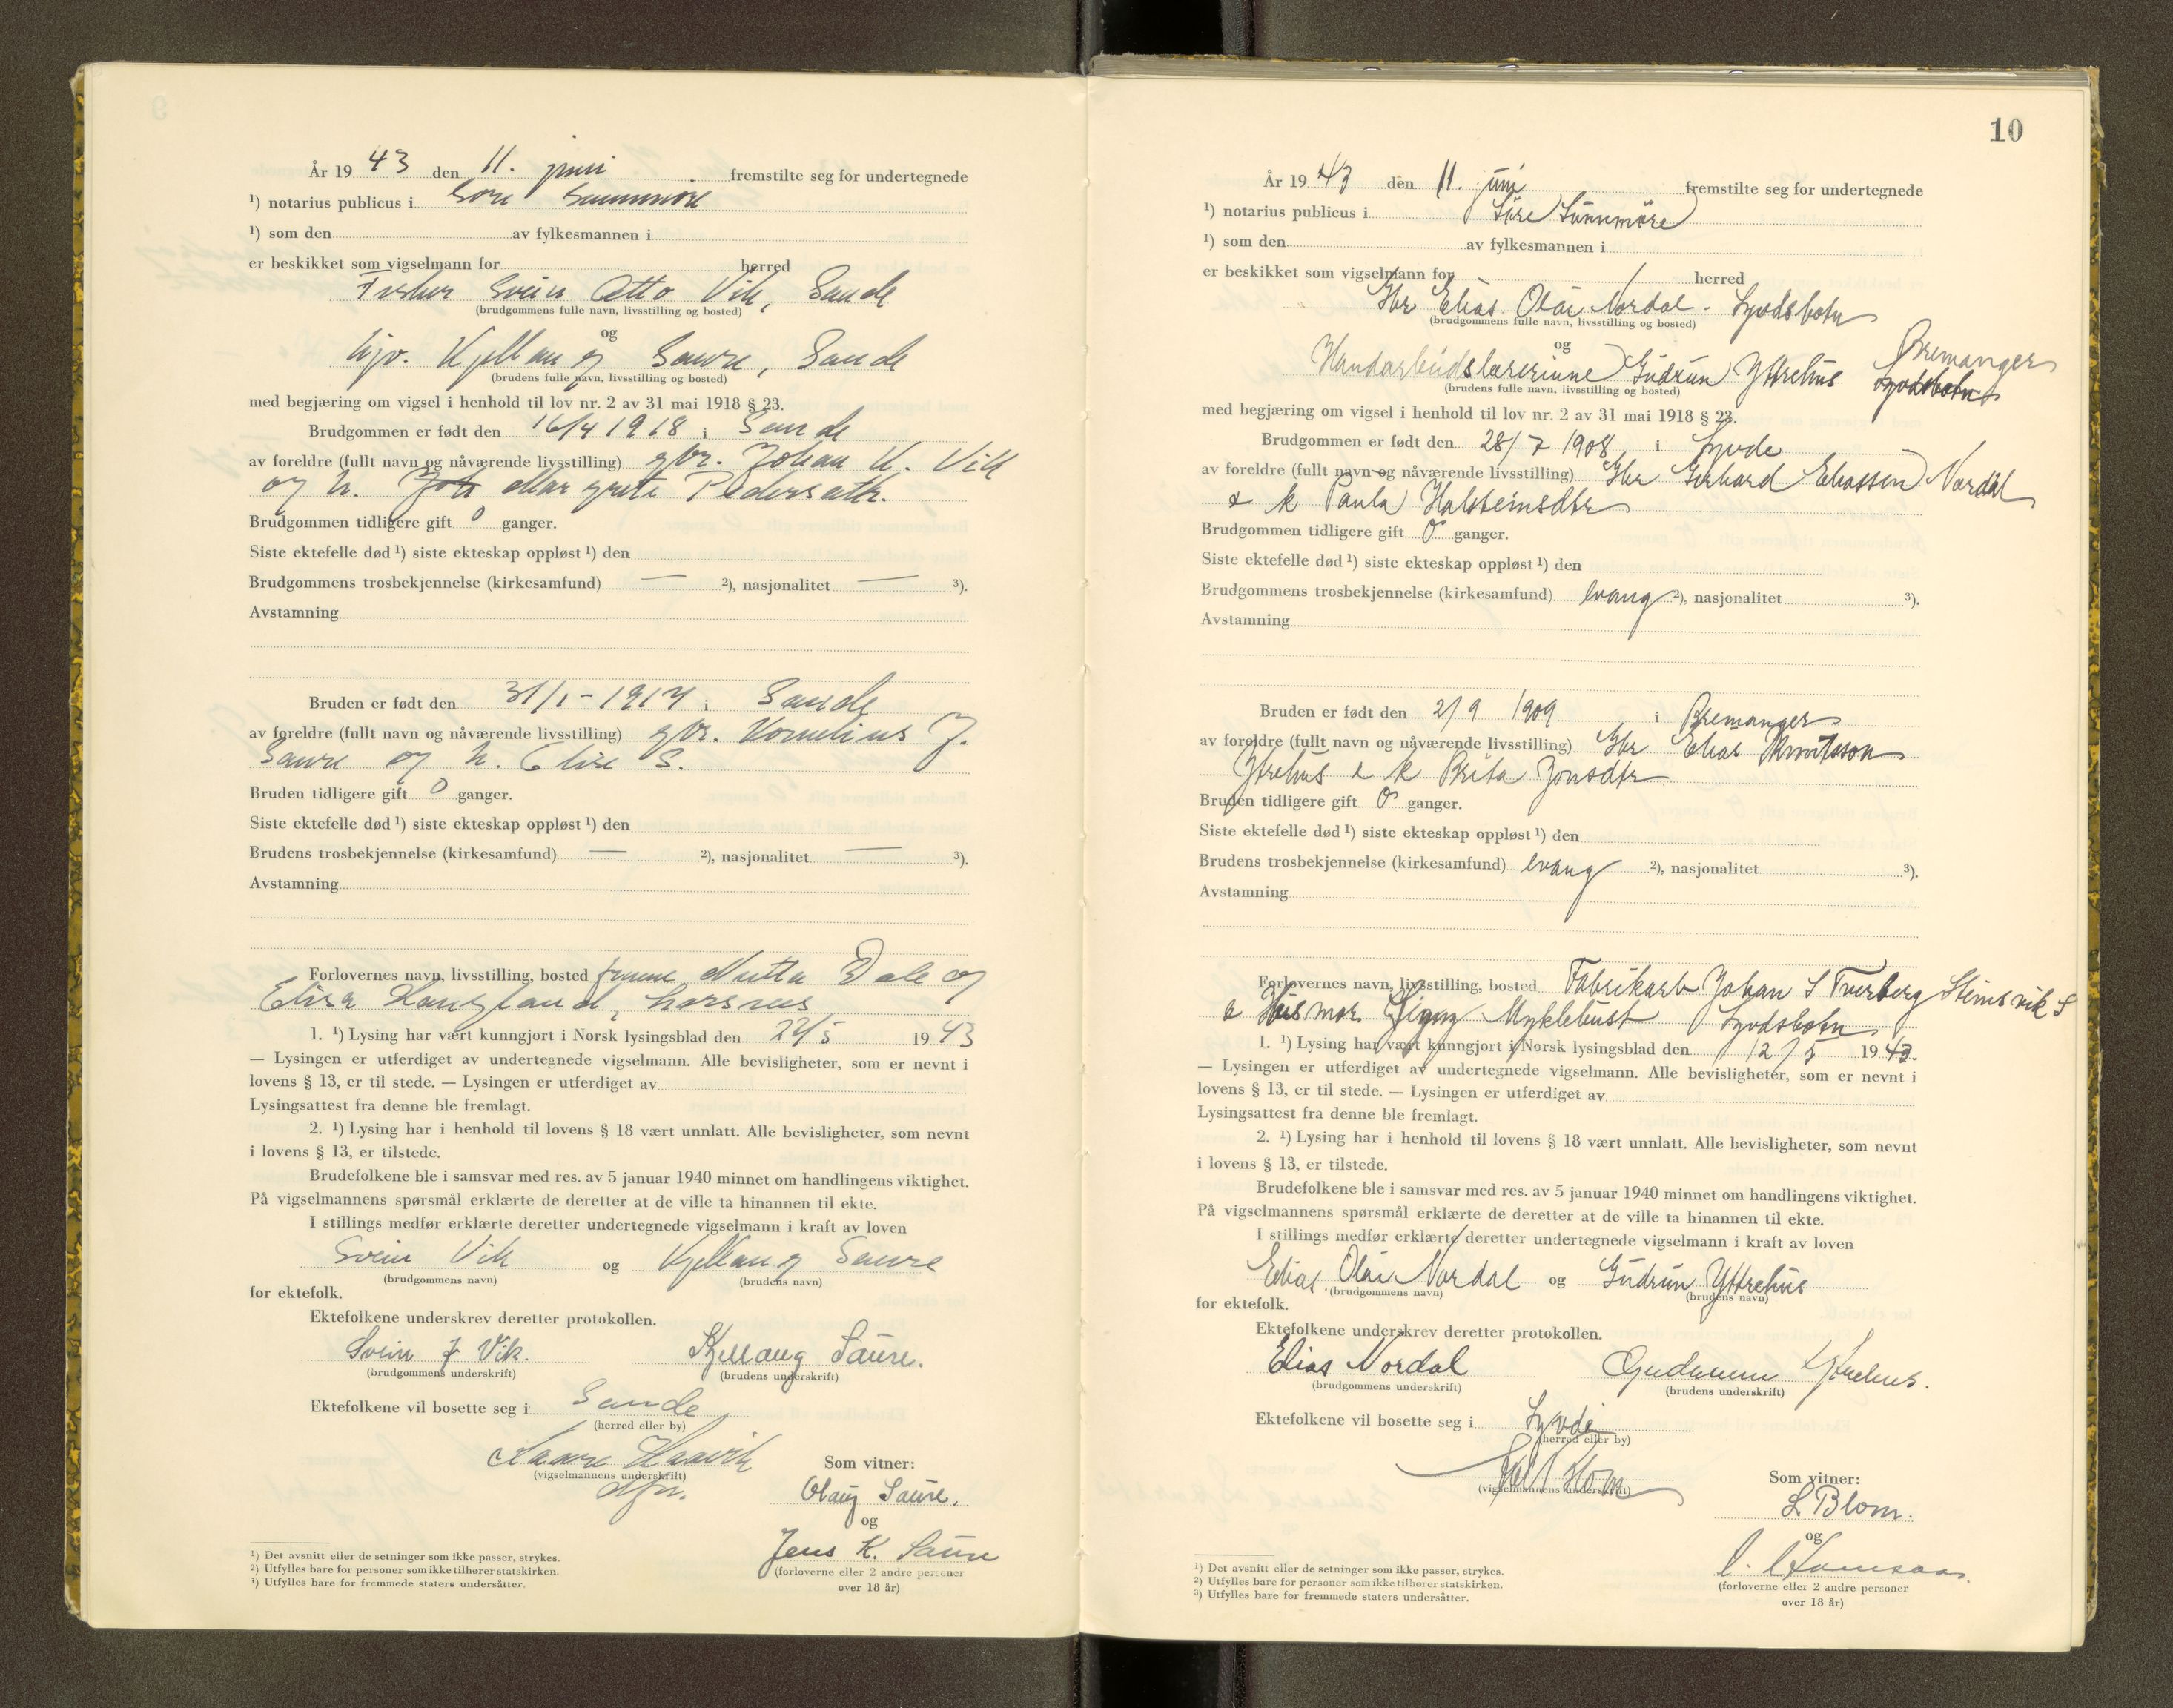 År 19 43 den 11. juni fremstilte seg for undertegnede
¹) notarius publicus i Søre Sunnmøre
¹) som den av fylkesmannen i
er beskikket som vigselmann for herred
Fisker Svein Otto Vik, Sande
(brudgommens fulle navn, livsstilling og bosted)
og
hjv. Kjellaug Saure, Sande
(brudens fulle navn, livsstilling og bosted)
med begjæring om vigsel i henhold til lov nr. 2 av 31 mai 1918 § 23.
Brudgommen er født den 16/4 1918 i Sande
av foreldre (fullt navn og nåværende livsstilling) gbr. Johan K. Vik
og h. Margrete Pedersdtr.
Brudgommen tidligere gift 0 ganger.
Siste ektefelle død ¹) siste ekteskap oppløst ¹) den
Brudgommens trosbekjennelse (kirkesamfund) — ²), nasjonalitet — ³).
Avstamning
Bruden er født den 31/1 - 1917 i Sande
av foreldre (fullt navn og nåværende livsstilling) gbr. Kornelius J.
Saure og h. Elise S.
Bruden tidligere gift 0 ganger.
Siste ektefelle død ¹) siste ekteskap oppløst ¹) den
Brudens trosbekjennelse (kirkesamfund) — ²), nasjonalitet — ³).
Avstamning
Forlovernes navn, livsstilling, bosted fruene Dale og
Elisa Haugland, Larsnes
1. ¹) Lysing har vært kunngjort i Norsk lysingsblad den 22/5 19 43
— Lysingen er utferdiget av undertegnede vigselmann. Alle bevisligheter, som er nevnt i
lovens § 13, er til stede. — Lysingen er utferdiget av
Lysingsattest fra denne ble fremlagt.
2. ¹) Lysing har i henhold til lovens § 18 vært unnlatt. Alle bevisligheter, som nevnt
i lovens § 13, er tilstede.
Brudefolkene ble i samsvar med res. av 5 januar 1940 minnet om handlingens viktighet.
På vigselmannens spørsmål erklærte de deretter at de ville ta hinannen til ekte.
I stillings medfør erklærte deretter undertegnede vigselmann i kraft av loven
Svein Vik og Kjellaug Saure
(brudgommens navn) (brudens navn)
for ektefolk.
Ektefolkene underskrev deretter protokollen.
Svein J Vik. Kjellaug Saure.
(brudgommens underskrift) (brudens underskrift)
Ektefolkene vil bosette seg i Sande
(herred eller by)
Kaare
(vigselmannens underskrift)
Som vitner:
Olaug Saure.
og
Jens K. Saure
(forloverne eller 2 andre personer
over 18 år)
¹) Det avsnitt eller de setninger som ikke passer, strykes.
²) Utfylles bare for personer som ikke tilhører statskirken.
³) Utfylles bare for fremmede staters undersåtter.
10
År 19 43 den 11. juni fremstilte seg for undertegnede
¹) notarius publicus i Søre Sunnmøre
¹) som den av fylkesmannen i
er beskikket som vigselmann for herred
Gbr Elias Olai Nordal - Syvdsbotn
(brudgommens fulle navn, livsstilling og bosted)
og
Handarbeidslærerinne Gudrun Yttrehus Bremanger Syvdsbotn
(brudens fulle navn, livsstilling og bosted)
med begjæring om vigsel i henhold til lov nr. 2 av 31 mai 1918 § 23.
Brudgommen er født den 28/7 1908 i Syvde
av foreldre (fullt navn og nåværende livsstilling) Gbr Gerhard Eliassen Nordal
& k Paula Halsteinsdtr
Brudgommen tidligere gift 0 ganger.
Siste ektefelle død ¹) siste ekteskap oppløst ¹) den
Brudgommens trosbekjennelse (kirkesamfund) evang ²), nasjonalitet ³).
Avstamning
Bruden er født den 2/9 1909 i Bremanger
av foreldre (fullt navn og nåværende livsstilling) Gbr Elias Knutsson
Ytrehus & k Brita Jonsdtr
Bruden tidligere gift 0 ganger.
Siste ektefelle død ¹) siste ekteskap oppløst ¹) den
Brudens trosbekjennelse (kirkesamfund) evang ²), nasjonalitet ³).
Avstamning
Forlovernes navn, livsstilling, bosted Fabrikarb Johan S Tverberg Steinsvik S
& Husmor Signy Myklebust Syvdsbotn
1. ¹) Lysing har vært kunngjort i Norsk lysingsblad den 12/5 19 43.
— Lysingen er utferdiget av undertegnede vigselmann. Alle bevisligheter, som er nevnt i
lovens § 13, er til stede. — Lysingen er utferdiget av
Lysingsattest fra denne ble fremlagt.
2. ¹) Lysing har i henhold til lovens § 18 vært unnlatt. Alle bevisligheter, som nevnt
i lovens § 13, er tilstede.
Brudefolkene ble i samsvar med res. av 5 januar 1940 minnet om handlingens viktighet.
På vigselmannens spørsmål erklærte de deretter at de ville ta hinannen til ekte.
I stillings medfør erklærte deretter undertegnede vigselmann i kraft av loven
Elias Olai Nordal og Gudrun Yttrehus
(brudgommens navn) (brudens navn)
for ektefolk.
Ektefolkene underskrev deretter protokollen.
Elias Nordal Gudrun Ytrehus.
(brudgommens underskrift) (brudens underskrift)
Ektefolkene vil bosette seg i Syvde
(herred eller by)
(vigselmannens underskrift)
Som vitner:
L Blom.
og
(forloverne eller 2 andre personer
over 18 år)
¹) Det avsnitt eller de setninger som ikke passer, strykes.
²) Utfylles bare for personer som ikke tilhører statskirken.
³) Utfylles bare for fremmede staters undersåtter.